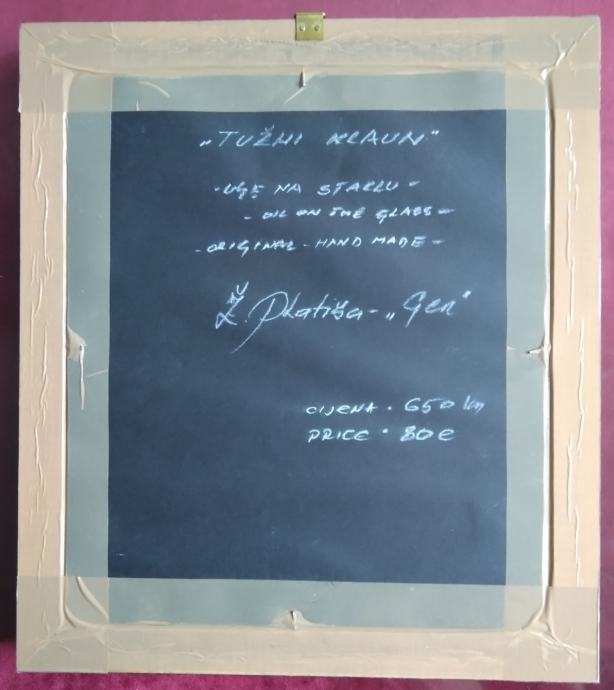 „TUŽNI KLAUN"
- ULJE NA STAKLU -
- OIL ON THE GLASS -
- ORIGINAL - HAND MADE -
Ž. Platiša - „Gen"
CIJENA • 650 kn
PRICE • 80 €